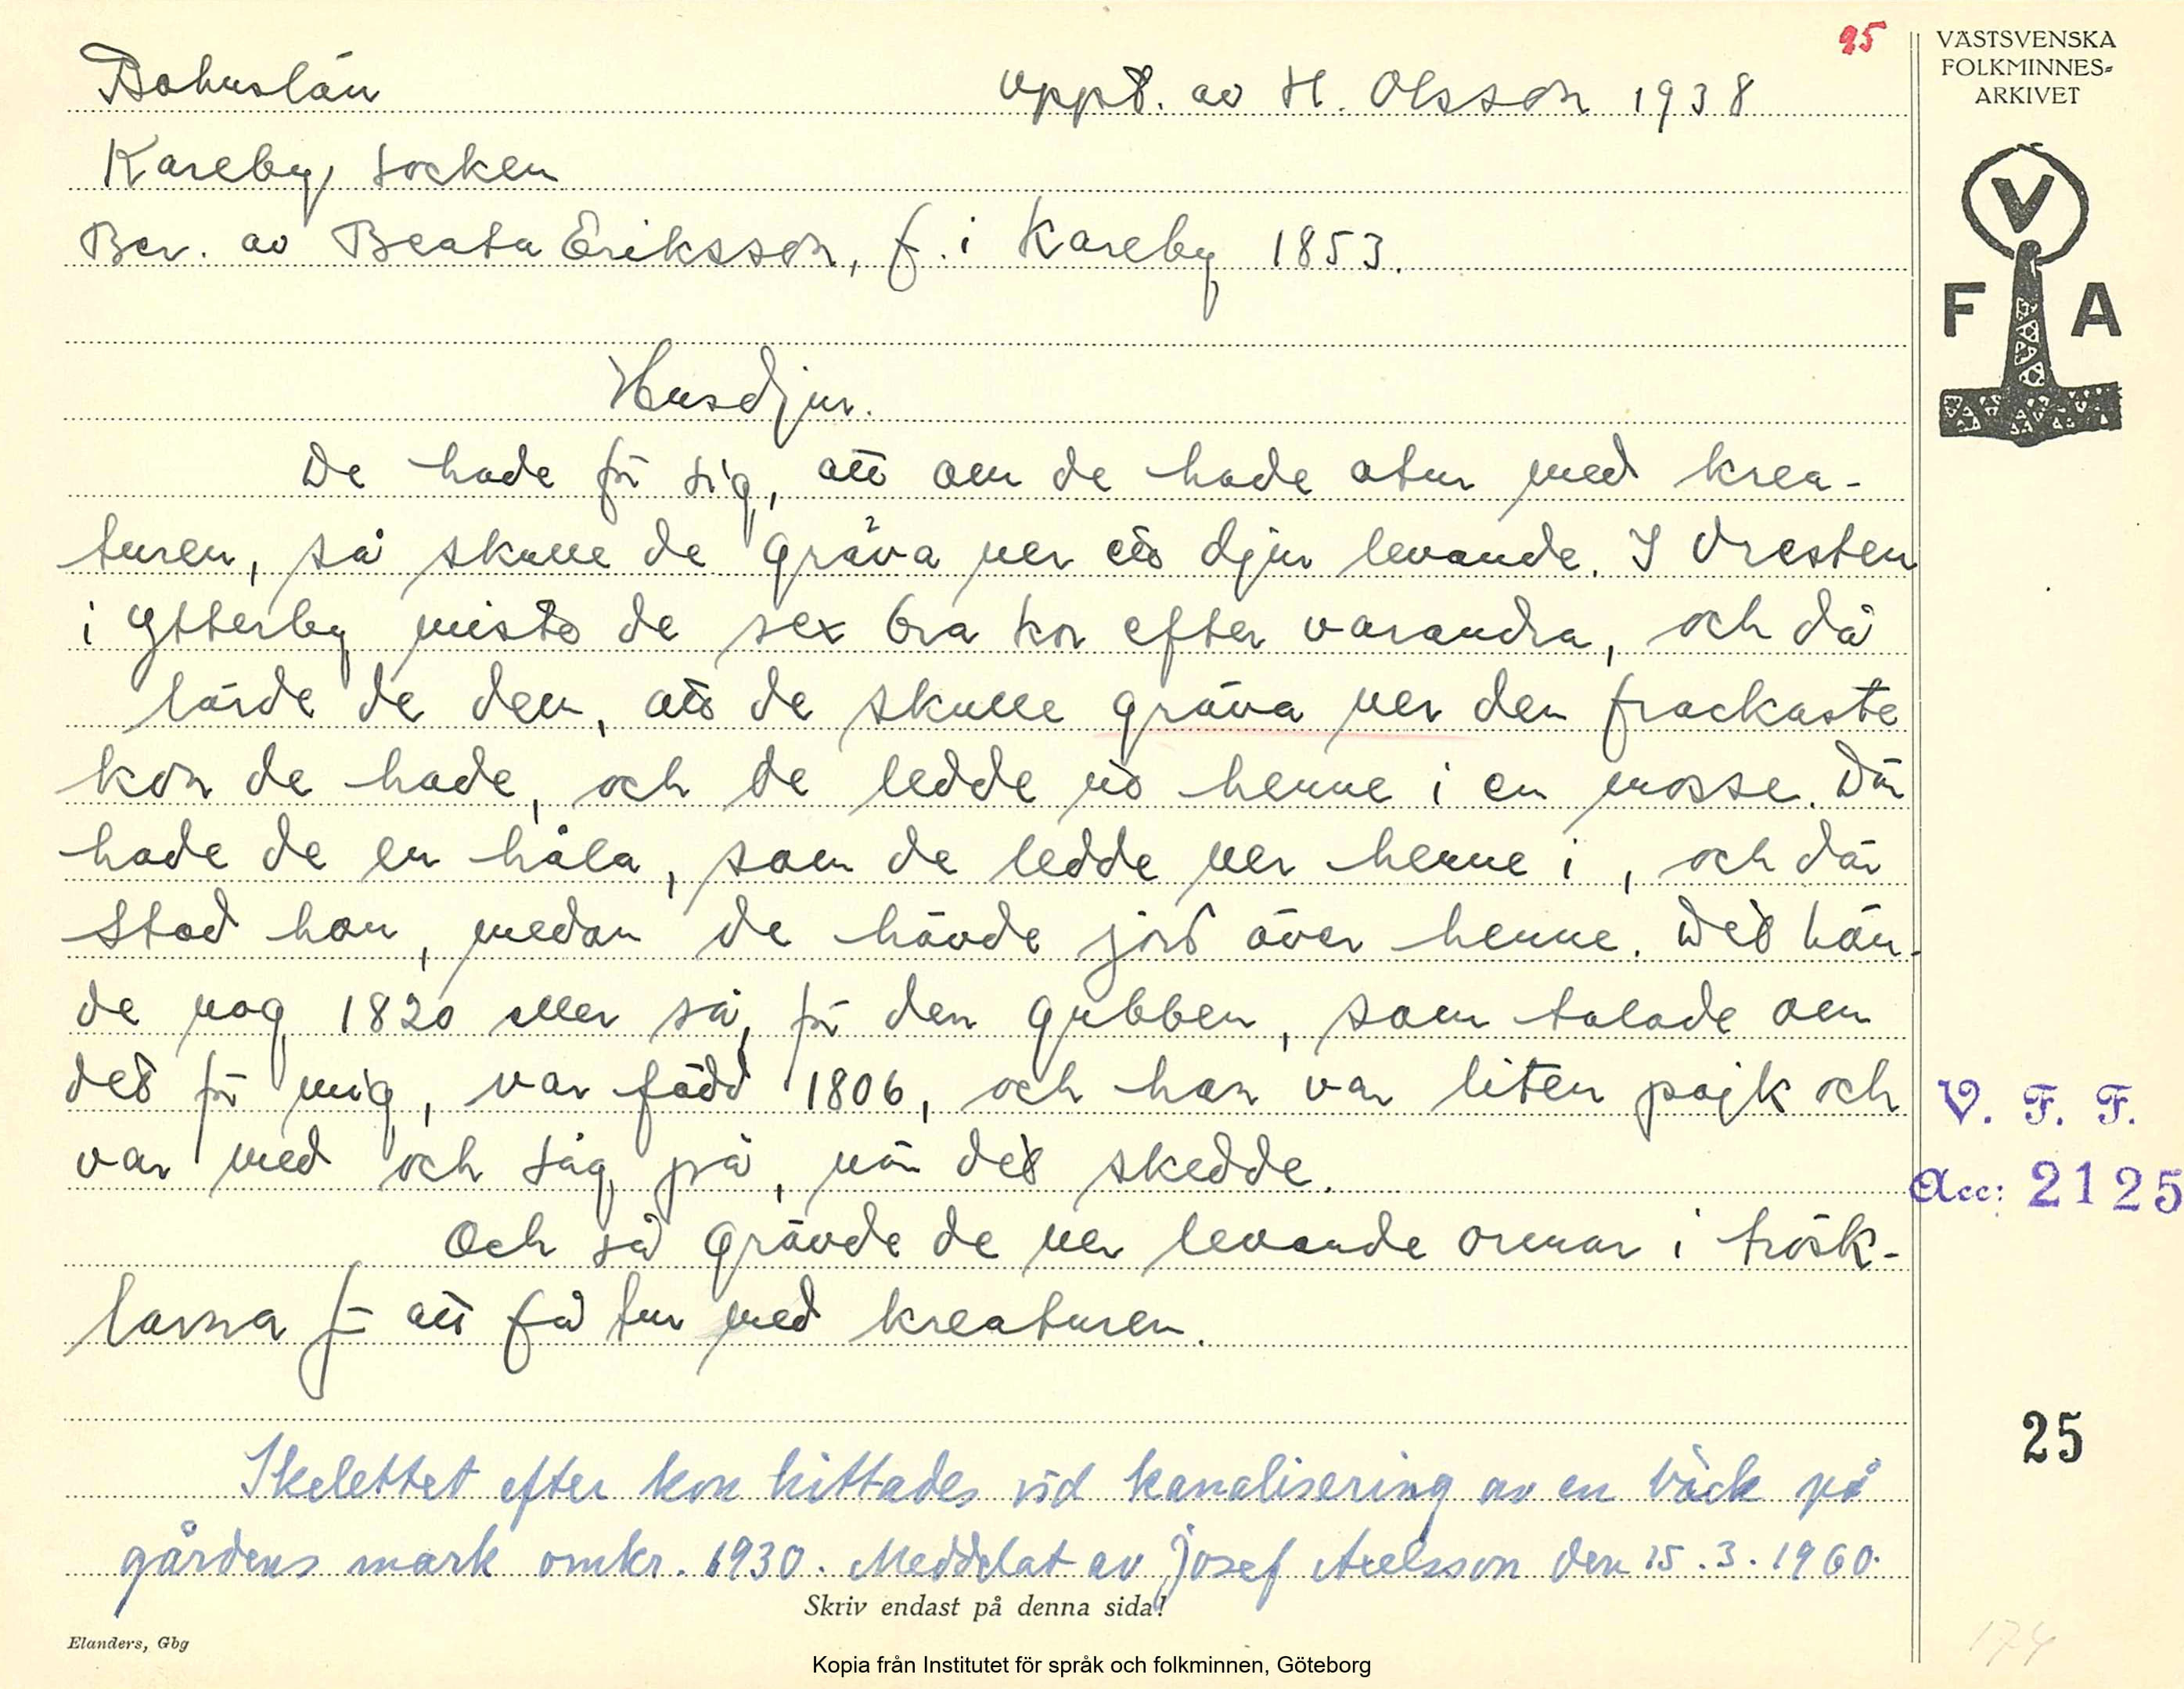 95
Bohuslän
Uppt. av H. Olsson 1938
Kareby socken
Ber. av Beata Eriksson, f. i Kareby 1853.
Husdjur.
De hade för sig, att om de hade otur med krea-
turen, så skulle de gräva ner ett djur levande. I Vresten
i Ytterby miste de sex bra kor efter varandra, och då
lärde de dem, att de skulle gräva ner den frackaste
kon de hade, och de ledde ut henne i en mosse. Där
hade de en håla, som de ledde ner henne i, och där
stod hon, medan de hävde jord över henne. Det hän-
de nog 1820 eller så, för den gubben, som talade om
det för mig, var född 1806, och han var liten pojk och
var med och såg på, när det skedde.
Och så grävde de ner levande ormar i trösk-
larna för att få tur med kreaturen.
Skelettet efter kon hittades vid kanalisering av en bäck på
gårdens mark omkr. 1930. Meddelat av Josef Axelsson den 15.3.1960.
Skriv endast på denna sida!
Elanders, Gbg
Kopia från Institutet för språk och folkminnen, Göteborg
VÄSTSVENSKA
FOLKMINNES-
ARKIVET
V
F A
V. F. F.
Acc: 2125
25
174